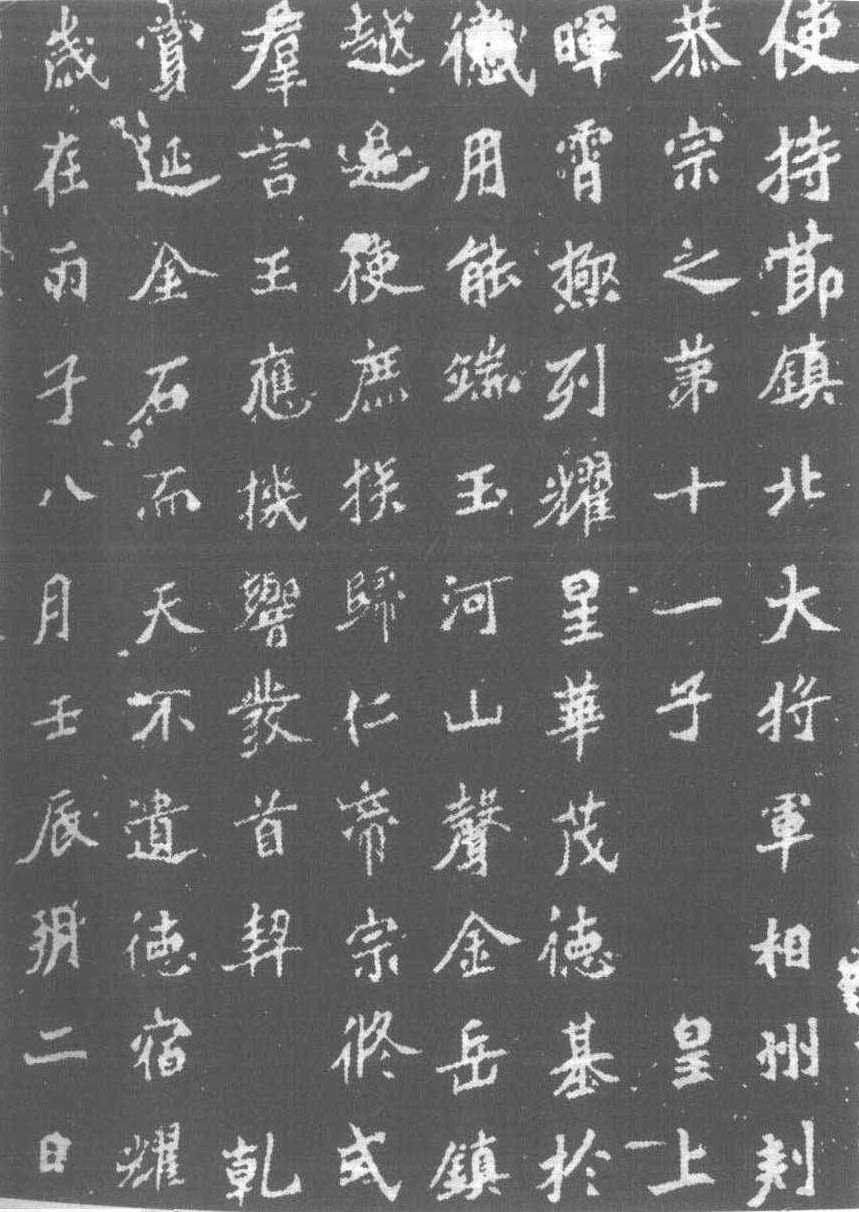 使持節鎮北大將軍相州刾
恭宗之第十一子皇上
暉霄極列耀星華茂德基於
懺用能端玉河山聲金岳鎮
越邉使庶族歸仁帝宗脩式
羣言王應機響發首契乾
賞延金石而天不遺德宿耀
歲在丙子八月壬辰朔二日